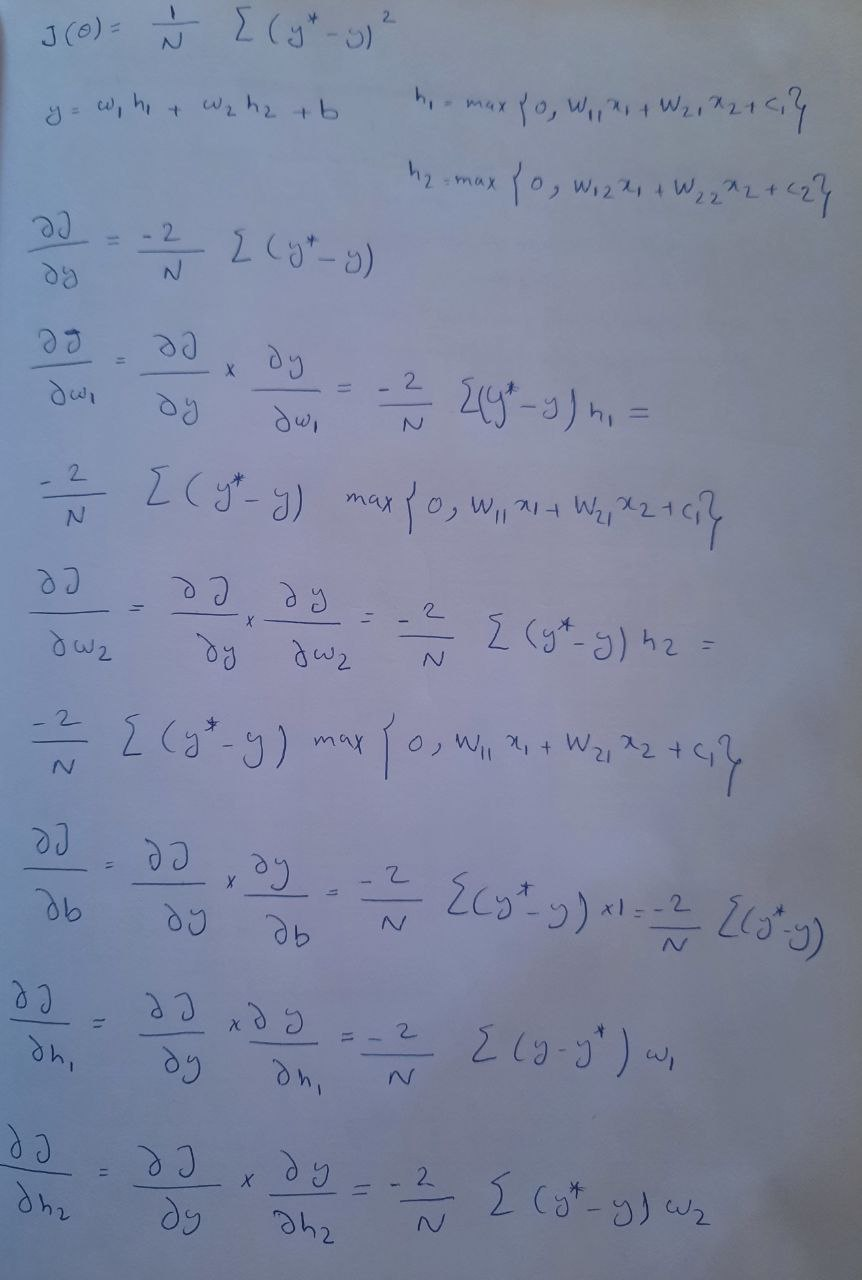 J(θ) = 1/N Σ (y* - y)²
y = w₁h₁ + w₂h₂ + b    h₁ = max{0, W₁₁x₁ + W₂₁x₂ + c₁}
h₂ = max{0, W₁₂x₁ + W₂₂x₂ + c₂}
∂J/∂y = -2/N Σ (y* - y)
∂J/∂w₁ = ∂J/∂y × ∂y/∂w₁ = -2/N Σ(y* - y) h₁ =
-2/N Σ (y* - y) max{0, W₁₁x₁ + W₂₁x₂ + c₁}
∂J/∂w₂ = ∂J/∂y × ∂y/∂w₂ = -2/N Σ (y* - y) h₂ =
-2/N Σ (y* - y) max{0, W₁₁x₁ + W₂₁x₂ + c₁}
∂J/∂b = ∂J/∂y × ∂y/∂b = -2/N Σ(y* - y) ×1 = -2/N Σ(y* - y)
∂J/∂h₁ = ∂J/∂y × ∂y/∂h₁ = -2/N Σ (y - y*) w₁
∂J/∂h₂ = ∂J/∂y × ∂y/∂h₂ = -2/N Σ (y* - y) w₂